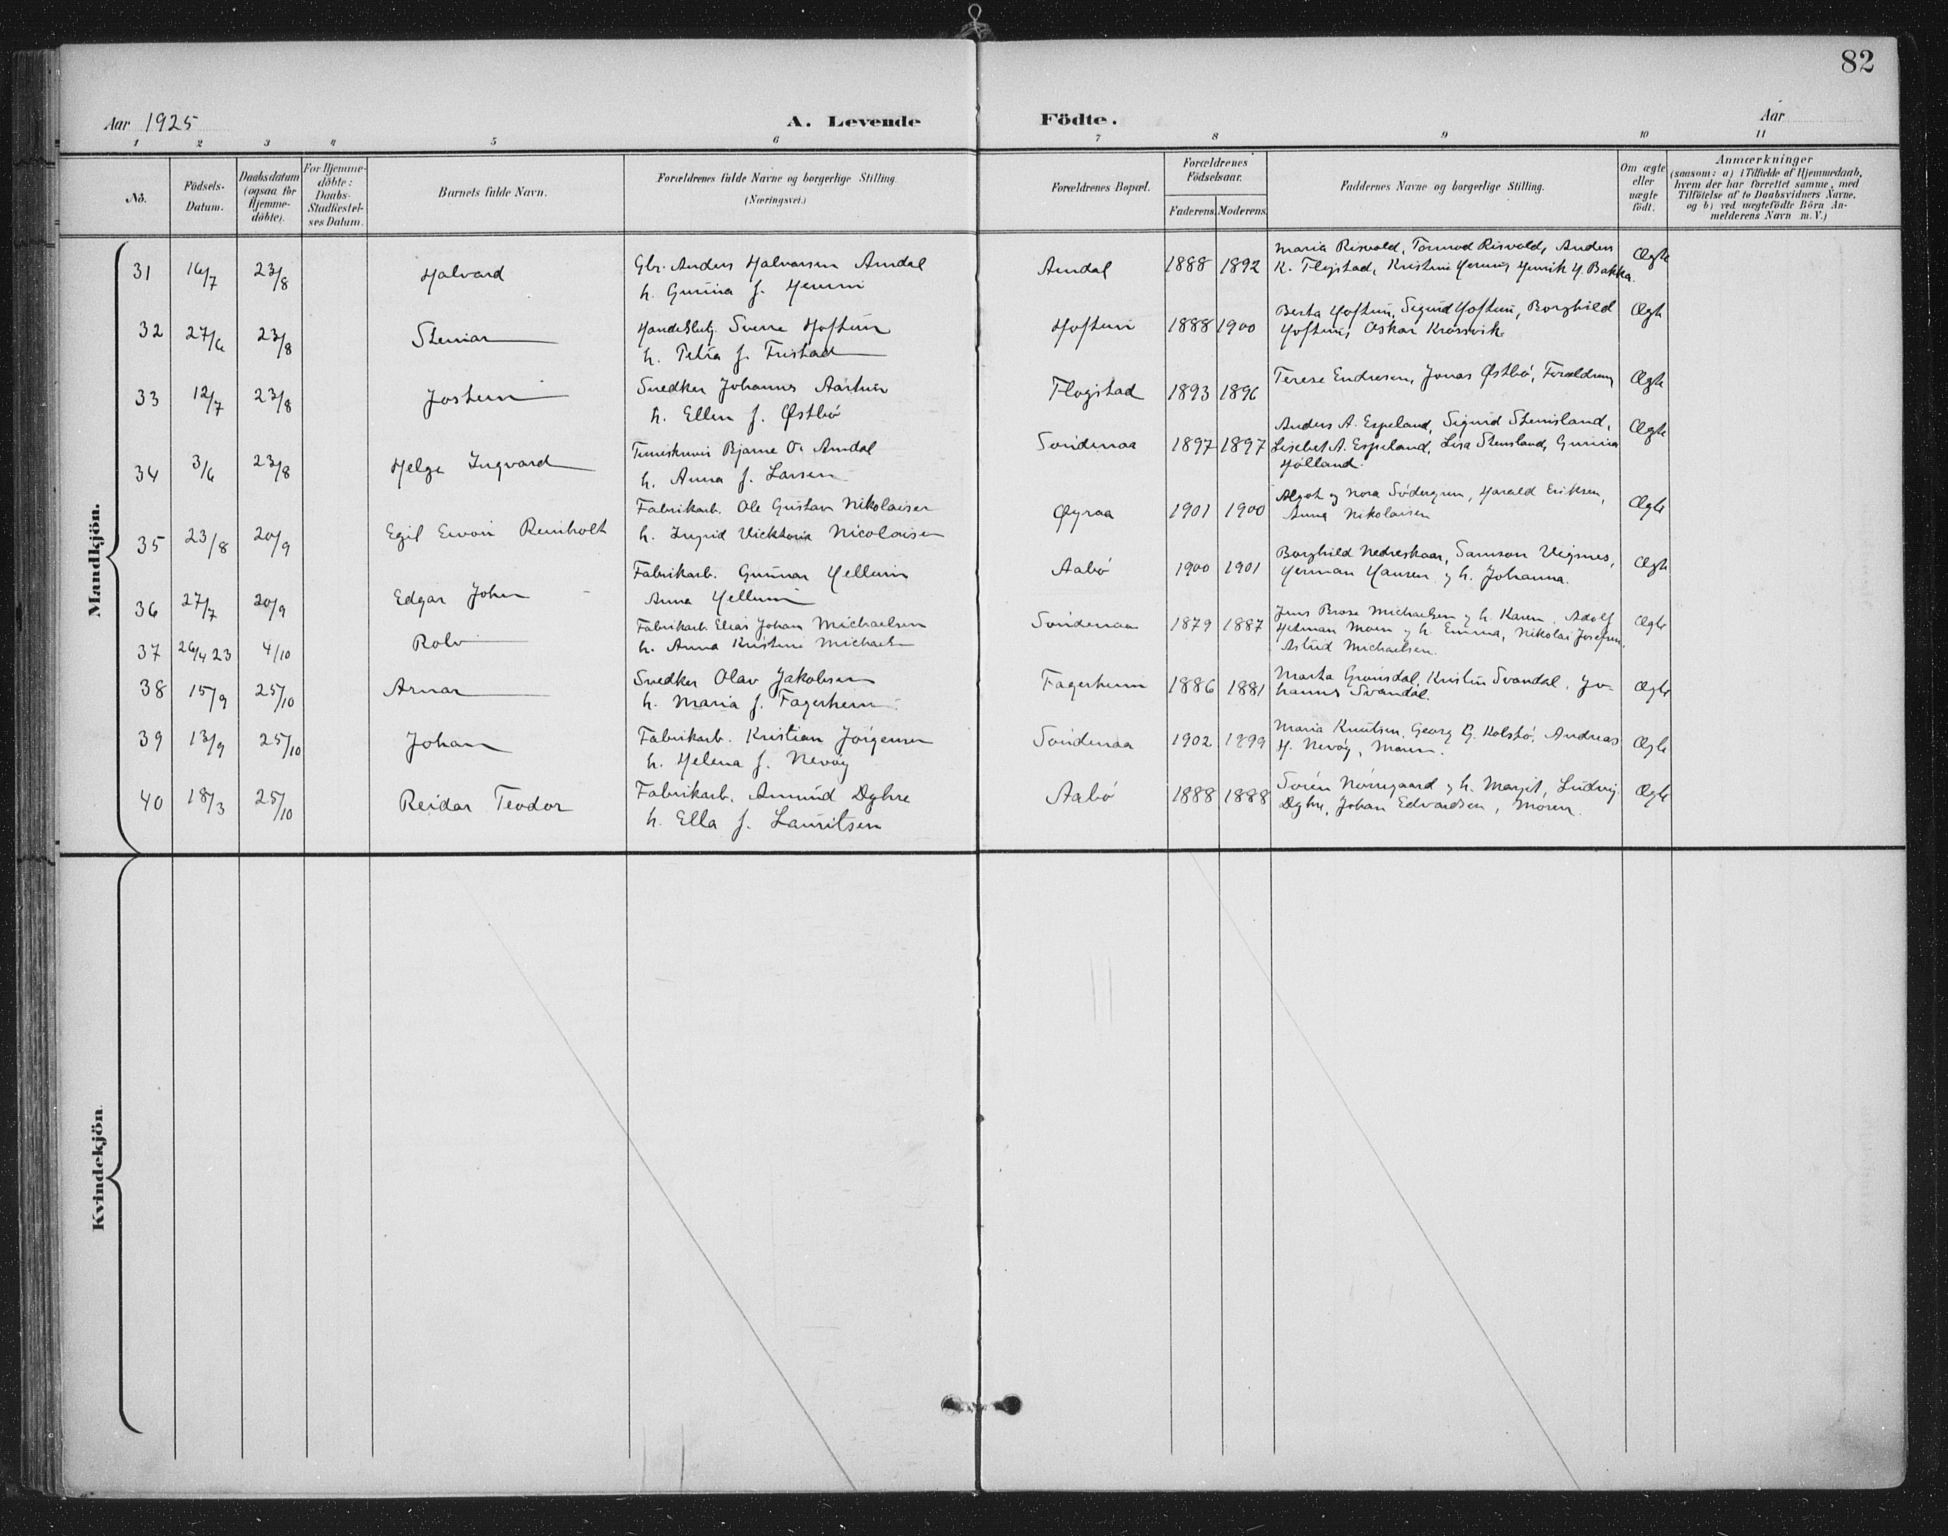 82
Aar 1925
A. Levende Födte.
Aar
1 2 3 4 5 6 7 8 9 10 11
No.
Födsels-Datum.
Daabsdatum (ogsaa for Hjemme-döbte).
For Hjemme-döbte: Daabs-Stadfæstel-ses Datum.
Barnets fulde Navn.
Forældrenes fulde Navne og borgerlige Stilling (Næringsvei.)
Forældrenes Bopæl.
Forældrenes Födselsaar.
Faderens. Moderens.
Faddernes Navne og borgerlige Stilling.
Om ægte eller uægte födt.
Anmærkninger
(saasom: a) i Tilfælde af Hjemmedaab, hvem der har forrettet samme, med Tilföielse af to Daabsvidners Navne, og b) ved uægtefödte Börn An-melderens Navn m. V.)
Mandkjön.
31 16/7 23/8 Halvard Gbr. Anders Halvorsen Amdal Amdal 1888 1892 Maria Risvold, Tormod Risvold, Anders Ægte
h. Gunna f. K. Flogstad, Kristine Henrik H. Bakka.
32 27/6 23/8 Steinar Handelsbetj. Sverre Hoftun Hoftun 1888 1900 Berta Hoftun, Sigurd Hoftun, Borghild Ægte
h. Petra f. Fristad Hoftun, Oskar Krossvik
33 12/7 23/8 Jostein Snedker Johannes Flogstad 1893 1896 Terese Endresen, Jonas Østbö, Forældrene Ægte
h. Ellen f. Østbö
34 3/6 23/8 Helge Ingvard Bjarne O. Amdal Söndenaa 1897 1897 Anders A. Espeland, Sigurd Stensland, Ægte
h. Anna f. Larsen Lisebet A. Espeland, Lisa Stensland, Gunna
Hølland.
35 23/8 20/9 Egil Reinholt Fabrikarb. Ole Gustav Nikolaisen Øyraa 1901 1900 Algot og Nora Södergren, Harald Eriksen, Ægte
h. Ingrid Vicktoria Nicolaisen Anna Nikolaisen
36 27/7 20/9 Edgar John Fabrikarb. Gunnar Hellum Aabö 1900 1901 Borghild Nedreskaar, Samson Vigsnes, Ægte
Anna Hellum Herman Hansen og h. Johanna.
37 26/4 23 4/10 Rolv Fabrikarb. Elias Johan Michaelsen Söndenaa 1879 1887 Jens Brose Michaelsen og h. Karen, Adolf Ægte
h. Anna Kristine Michaels Moen og h. Emma, Nikolai Josefsen,
Astrid Michaelsen.
38 15/9 25/10 Arnar Snedker Olav Jakobsen Fagerheim 1886 1881 Marta Grönsdal, Kristin Svandal, Jo- Ægte
h. Maria f. Fagerheim hannes Svandal.
39 13/9 25/10 Johan Fabrikarb. Kristian Jörgensen Söndenaa 1902 1899 Maria Knutsen, Georg G. Kolstö, Andreas Ægte
h. Helena f. Nevöy H. Nevöy, Moren.
40 18/3 25/10 Reidar Teodor Fabrikarb. Amund Dybre Aabö 1888 1888 Sören Nörregaard og h. Margit, Ludvig Ægte
h. Ella f. Lauritsen Dybre, Johan Edvardsen, Moren.
Kvindekjön.